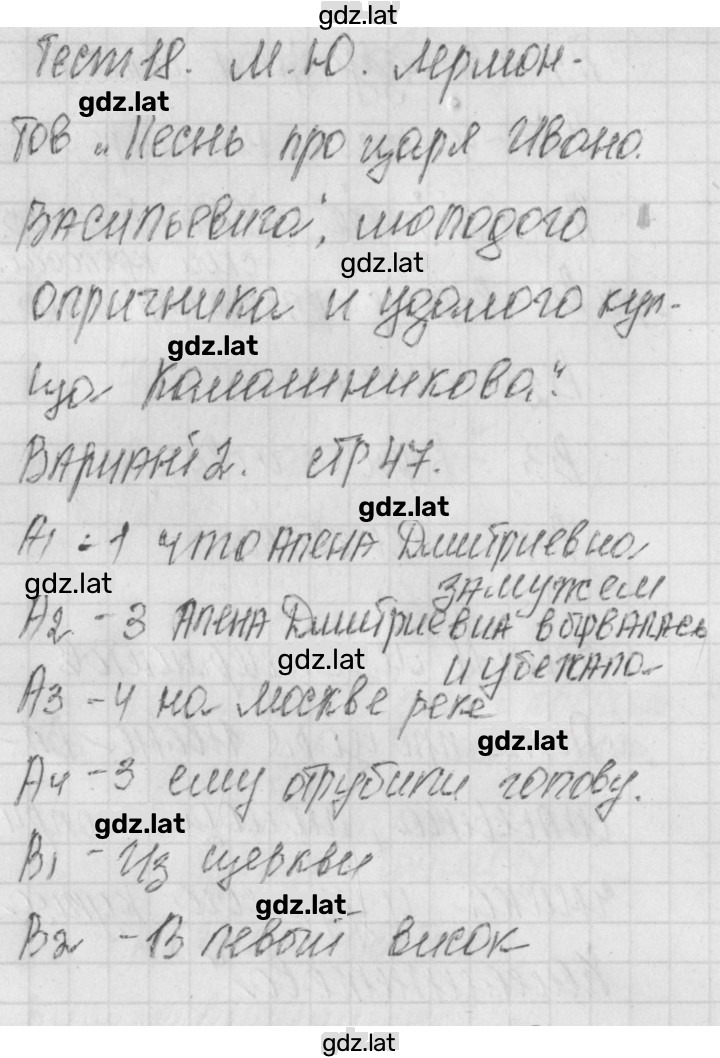 gdz.lat
Тест 18. М.Ю. Лермон-
gdz.lat
тов „Песнь про царя Ивана
Васильевича", молодого
gdz.lat
опричника и удалого куп-
gdz.lat
ца Калашникова."
Вариант 2. стр 47.
gdz.lat
А1 - 1 что Алена Дмитриевна
gdz.lat
замужем
А2 - 3 Алена Дмитриевна вырвалась
gdz.lat
и убежала
А3 - 4 на Москве реке
gdz.lat
А4 - 3 ему отрубили голову.
gdz.lat
В1 - Из церкви
gdz.lat
В2 - В левый висок
gdz.lat